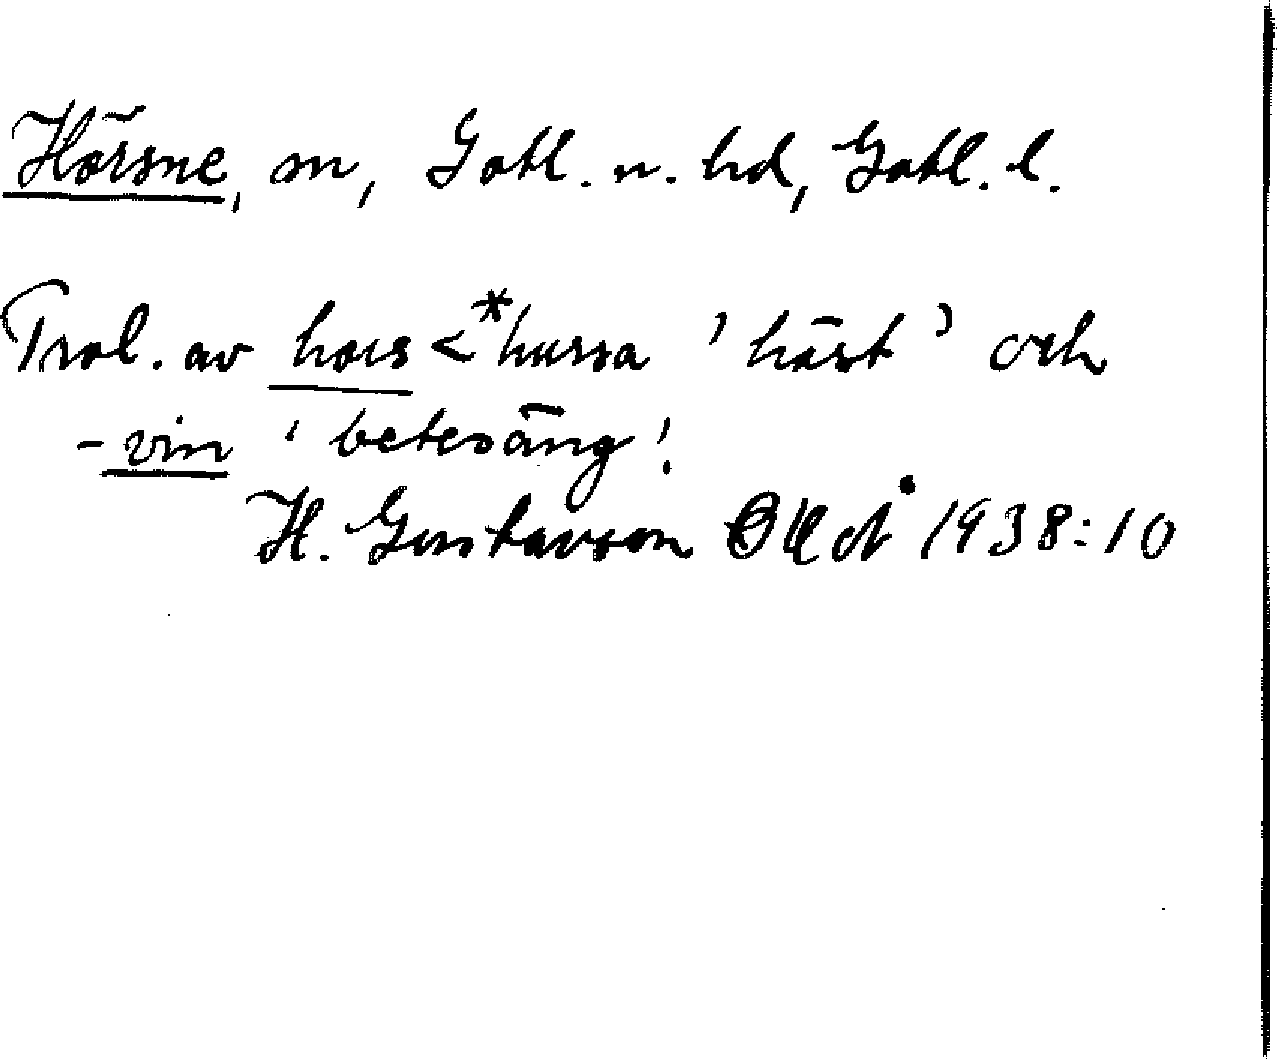 Hörsne, sn, Gotl. n. hd, Gotl. l.
Trol. av hors < *hursa 'häst' och
-vin 'betesäng'.
H. Gustavson 1938:10